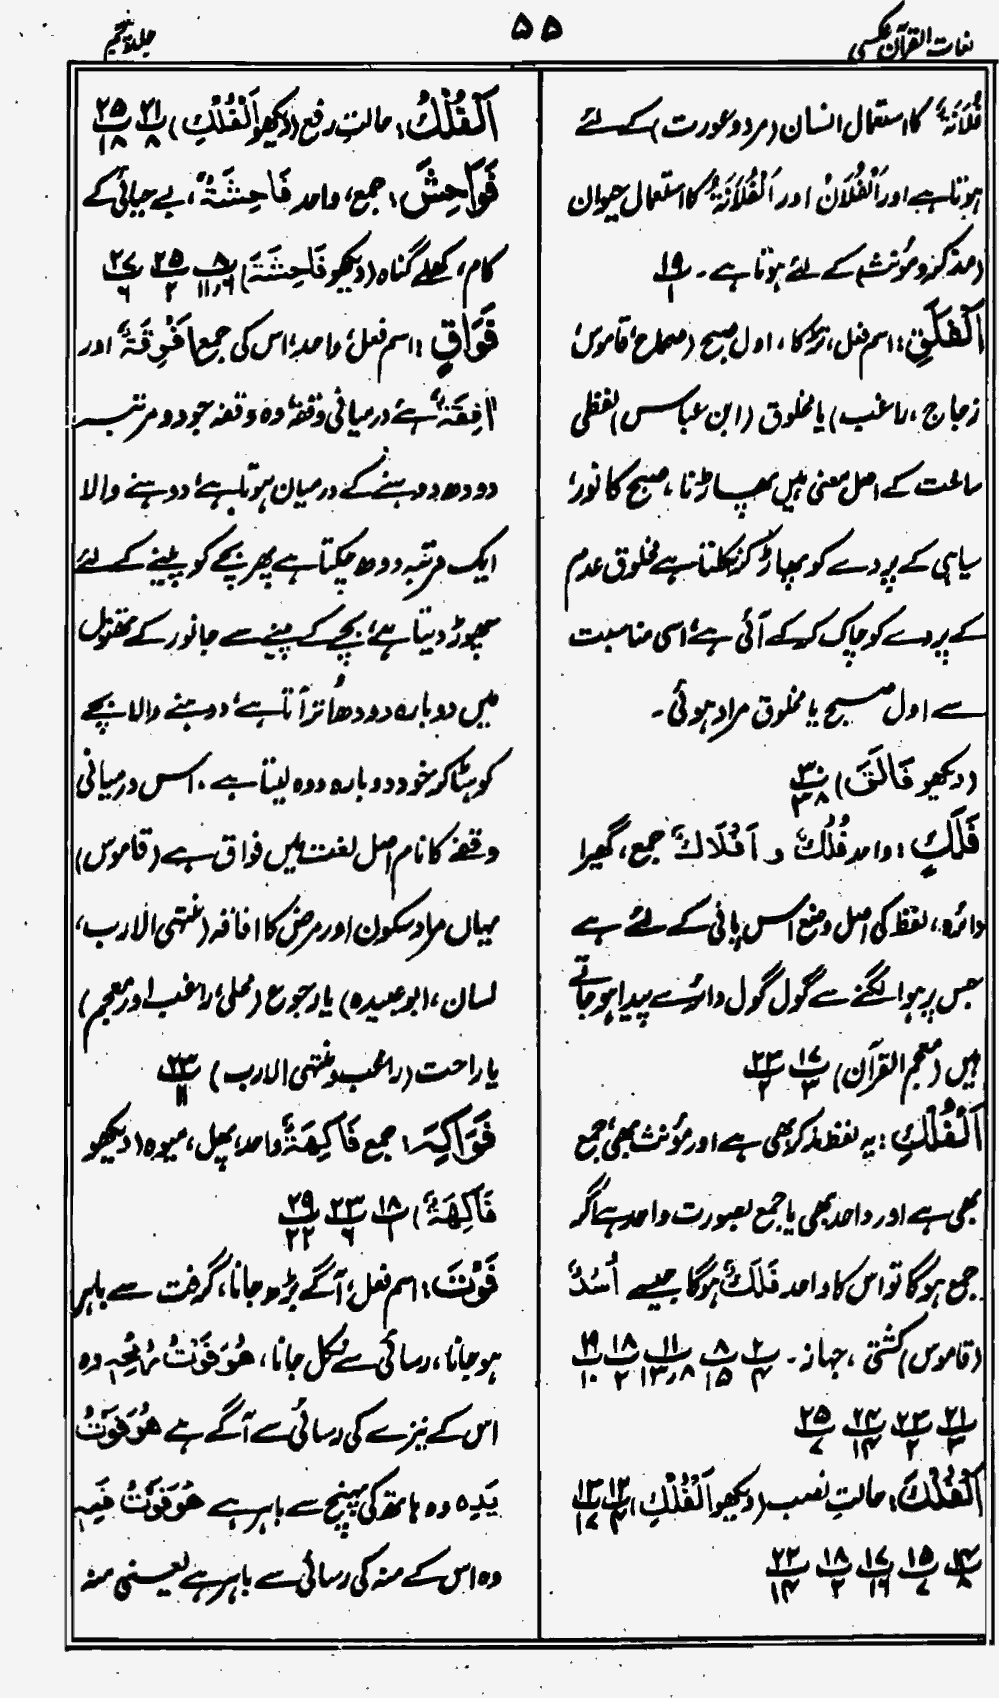 لغات القرآن عکسی
۵۵
جلد پنجم
فُلَانَۃٌ کا استعمال انسان (مرد و عورت) کے لئے
ہوتا ہے اور اَلْفُلَانُ اور اَلْفُلَانَۃُ کا استعمال حیوان
(مذکر و مؤنث) کے لئے ہوتا ہے۔ ۱۹/۱
اَلْفَلَقِ: اسم فعل، تڑکا، اول صبح (صحاح، قاموس،
زجاج، راغب) یا مخلوق (ابن عباس) لفظی
ساخت کے اصل معنی ہیں پھاڑنا، صبح کا نور،
سیاہی کے پردے کو پھاڑ کر نکلتا ہے مخلوق عدم
کے پردے کو چاک کر کے آئی ہے، اسی مناسبت
سے اول صبح یا مخلوق مراد ہوئی۔
(دیکھو فَالَقَ) ۳۰/۳۸
فَلَكٍ: واحد فُلُكٌ و اَفْلَاكٌ جمع، گھیرا
دائرہ، لفظ کی اصل وضع اس پانی کے لئے ہے
جس پر ہوا لگنے سے گول گول دائرے پیدا ہو جاتے
ہیں (معجم القرآن) ۱۷/۳ ۲۳/۲
اَلْفُلْكِ: یہ لفظ مذکر بھی ہے اور مؤنث بھی، جمع
بھی ہے اور واحد بھی یا جمع بصورت واحد ہے اگر
جمع ہوگا تو اس کا واحد فَلَكٌ ہوگا جیسے اُسُدٌ
(قاموس) کشتی، جہاز۔ ۲/۴ ۸/۱۵ ۱۱/۱۳٫۸ ۱۸/۲ ۱۹/۱۰
۲۱/۳ ۲۳/۲ ۲۴/۱۴ ۲۵/۷
اَلْفُلْكَ: حالتِ نصب (دیکھو اَلْفُلْكِ) ۱۲/۴ ۱۳/۱۷
۱۴/۸ ۱۵/۷ ۱۷/۱۶ ۱۸/۲ ۲۲/۱۴
اَلْفُلْكُ: حالتِ رفع (دیکھو اَلْفُلْكِ) ۲۱/۸ ۲۵/۱۸
فَوَاحِشَ: جمع، واحد فَاحِشَۃٌ، بے حیائی کے
کام، کھلے گناہ (دیکھو فَاحِشَۃَ) ۸/۱۱٫۶ ۲۵/۲ ۲۷/۶
فَوَاقٍ: اسم فعل، واحد، اس کی جمع اَفْوِقَۃٌ اور
اٰفِقَۃٌ ہے درمیانی وقفہ وہ وقفہ جو دو مرتبہ
دودھ دوہنے کے درمیان ہوتا ہے، دوہنے والا
ایک مرتبہ دودھ چکتا ہے پھر بچے کو پینے کے لئے
چھوڑ دیتا ہے، بچے کے پینے سے جانور کے تھنوں
میں دوبارہ دودھ اُتر آتا ہے، دوہنے والا بچے
کو ہٹا کر خود دوبارہ دوہ لیتا ہے۔ اس درمیانی
وقفے کا نام اصل لغت میں فواق ہے (قاموس)
یہاں مراد سکون اور مرض کا افاقہ (منتہی الارب،
لسان، ابو عبیدہ) یا رجوع (محلی، راغب اور معجم)
یا راحت (راغب و منتہی الارب) ۲۳/۱۱
فَوَاكِهَ: جمع فَاكِهَۃٌ واحد، پھل، میوہ (دیکھو
فَاكِهَۃٌ) ۱۸/۱ ۲۳/۶ ۲۹/۲۲
فَوْتَ: اسم فعل، آگے بڑھ جانا، گرفت سے باہر
ہو جانا، رسائی سے نکل جانا، هُوَ فَوْتُ رُمْحِہٖ وہ
اس کے نیزے کی رسائی سے آگے ہے هُوَ فَوْتُ
يَدِہٖ وہ ہاتھ کی پہنچ سے باہر ہے هُوَ فَوْتُ فَمِہٖ
وہ اس کے منہ کی رسائی سے باہر ہے یعنی منہ